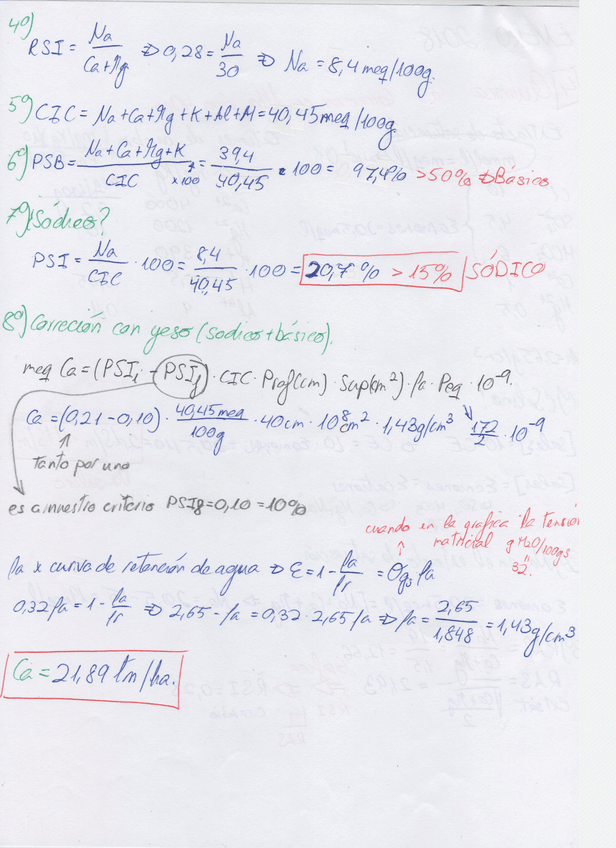 4º)
RSI = Na / Ca+Mg ⇒ 0,28 = Na / 30 ⇒ Na = 8,4 meq/100g.
5º) CIC = Na+Ca+Mg+K+Al+H = 40,45 meq/100g
6º) PSB = Na+Ca+Mg+K / CIC x100 = 39,4 / 40,45 · 100 = 97,4% >50% ⇒ Básico
7º) ¿Sódico?
PSI = Na / CIC · 100 = 8,4 / 40,45 · 100 = 20,7% > 15% SÓDICO
8º) Correción con yeso (sodico+básico).
meq Ca = (PSIi - PSIf) · CIC · Prof(cm) · Sup(cm²) · ρa · Peq · 10⁻⁹.
Ca = (0,21 - 0,10) · 40,45 meq / 100g · 40cm · 10⁸cm² · 1,43g/cm³ · 172 / 2 · 10⁻⁹
tanto por uno
es a nuestro criterio PSIf = 0,10 = 10%
cuando en la grafica la tensión
matricial g H2O/100gs
32"
ρa x curva de retención de agua ⇒ ε = 1 - ρa / ρr = θgs ρa
0,32 ρa = 1 - ρa / ρr ⇒ 2,65 - ρa = 0,32 · 2,65 ρa ⇒ ρa = 2,65 / 1,848 = 1,43g/cm³
Ca = 21,89 Tm/ha.